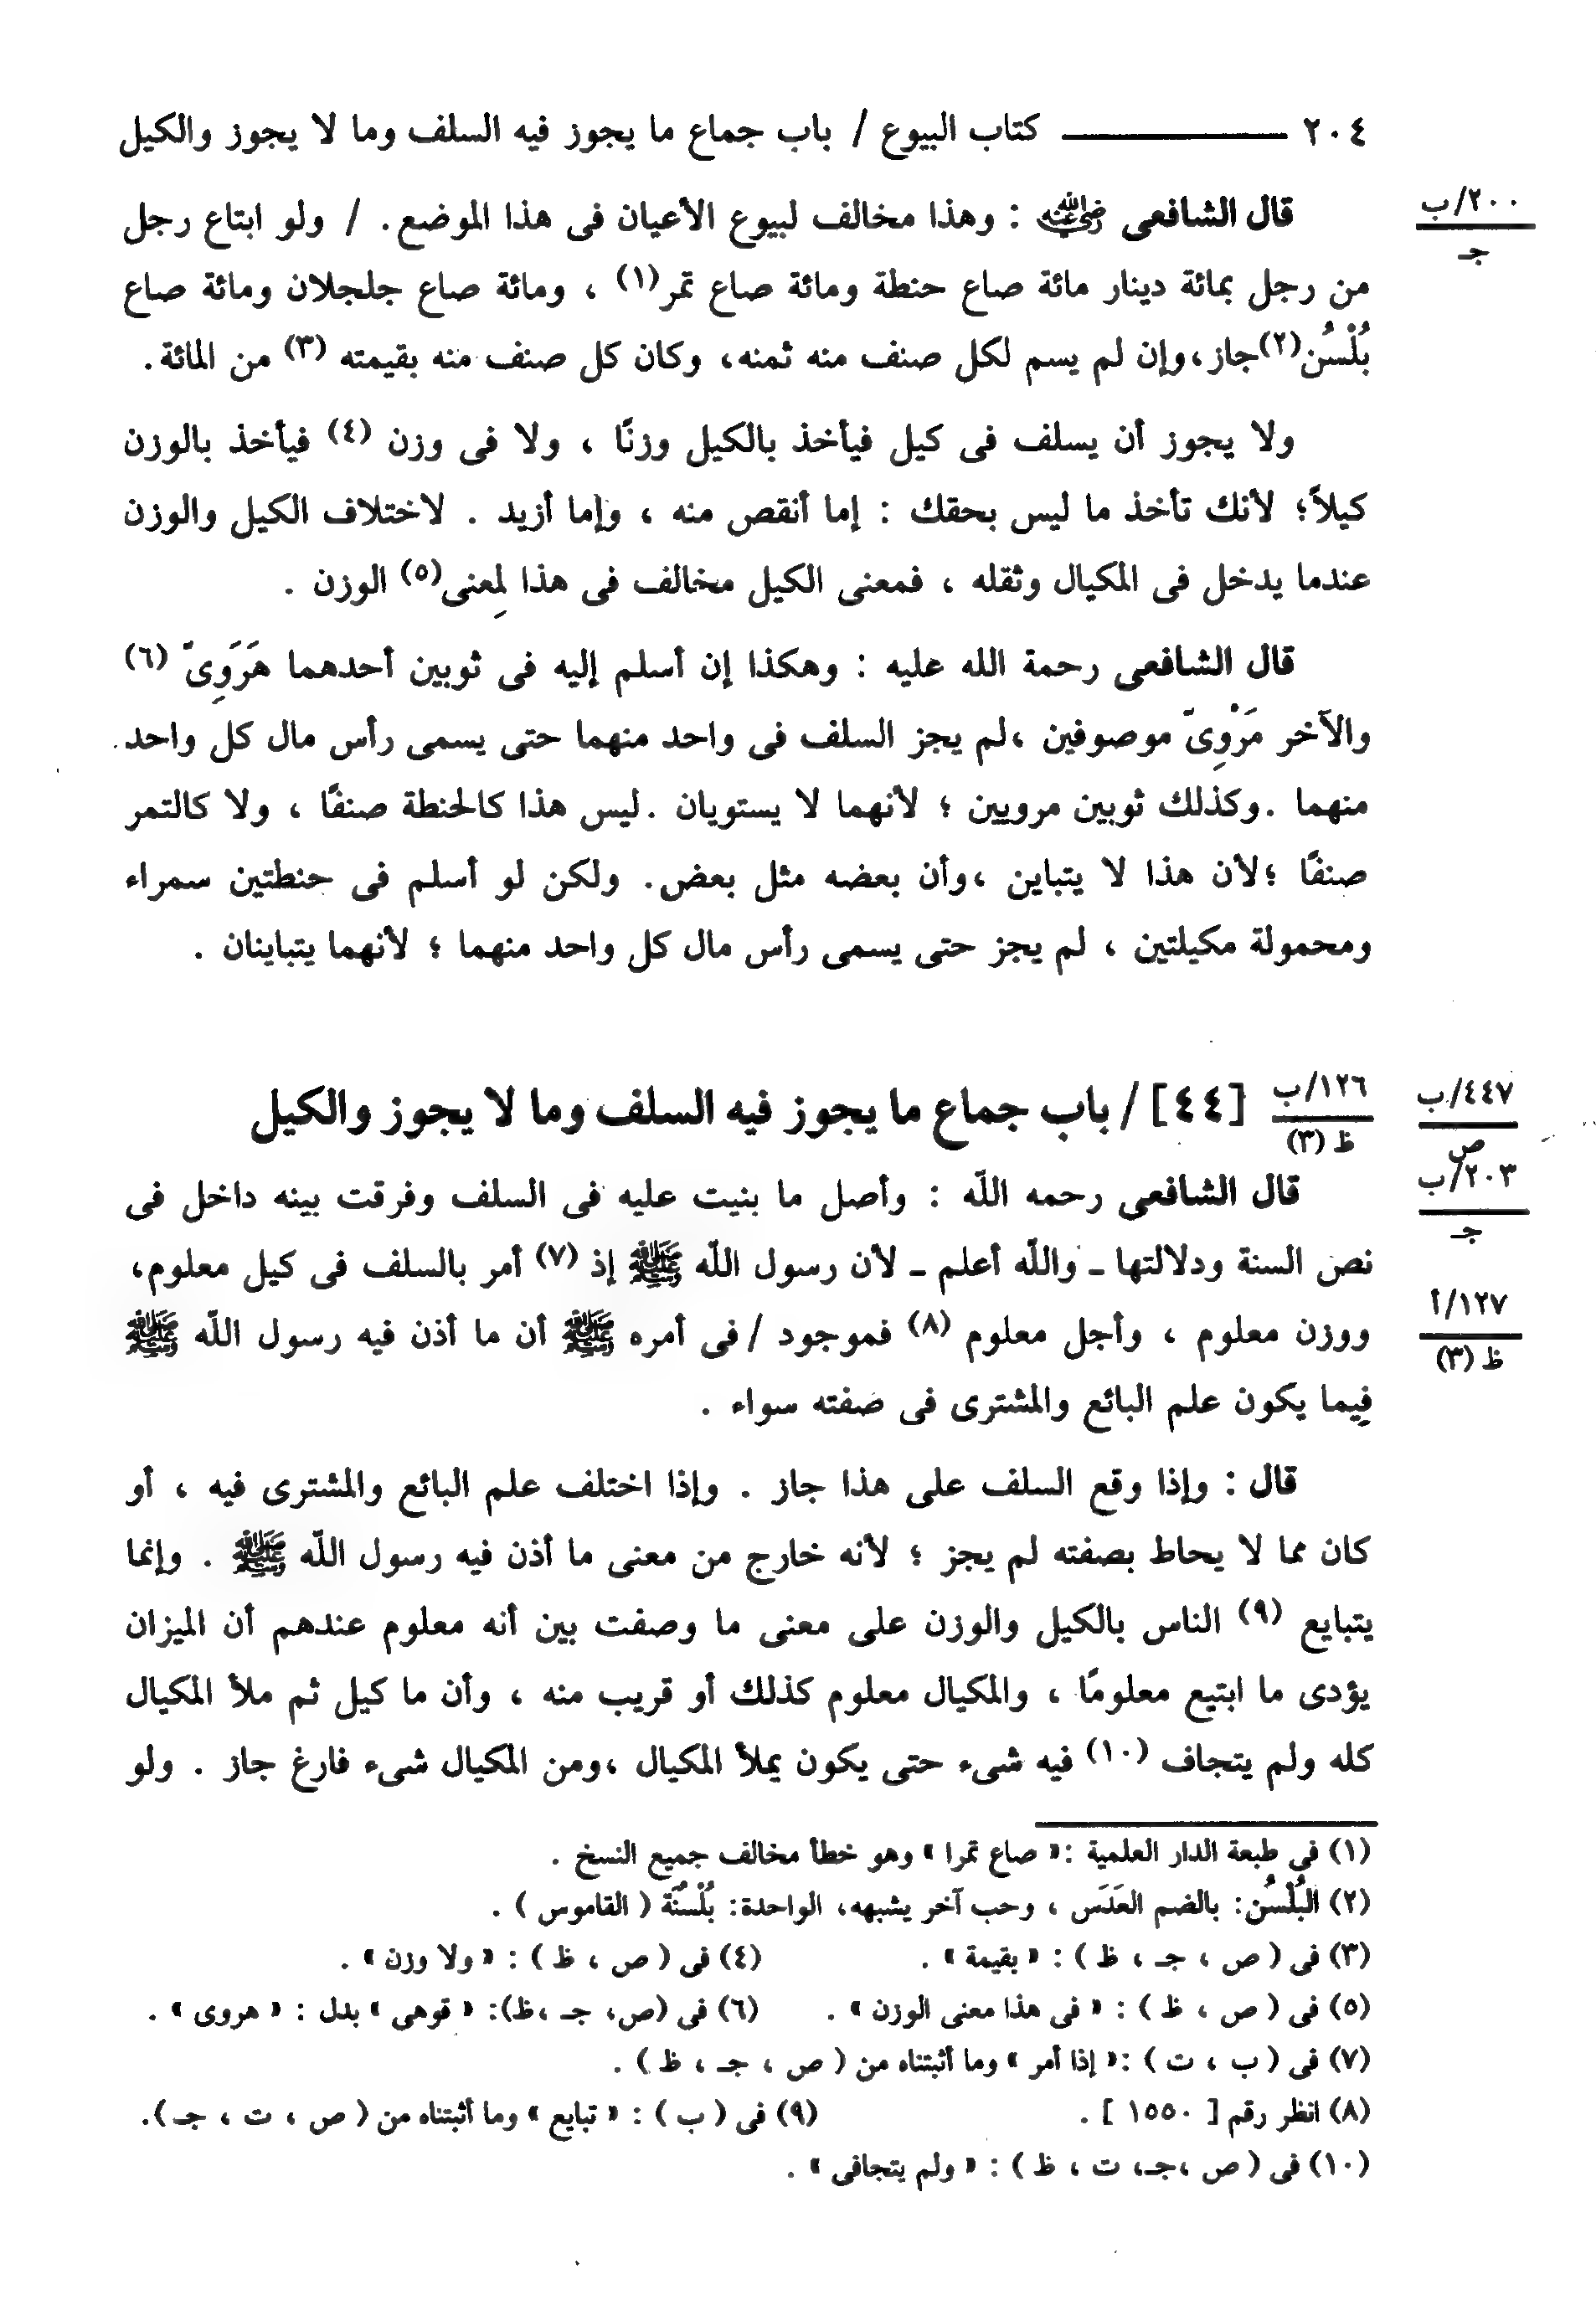 ٢٠٤ ــــــــــ كتاب البيوع / باب جماع ما يجوز فيه السلف وما لا يجوز والكيل
٢٠٠/ب
جـ
قال الشافعى رضي الله عنه : وهذا مخالف لبيوع الأعيان فى هذا الموضع. / ولو ابتاع رجل
من رجل بمائة دينار مائة صاع حنطة ومائة صاع تمر(١) ، ومائة صاع جلجلان ومائة صاع
بُلْسُن(٢)جاز،وإن لم يسم لكل صنف منه ثمنه، وكان كل صنف منه بقيمته (٣) من المائة.
ولا يجوز أن يسلف فى كيل فيأخذ بالكيل وزنًا ، ولا فى وزن (٤) فيأخذ بالوزن
كيلاً؛ لأنك تأخذ ما ليس بحقك : إما أنقص منه ، وإما أزيد . لاختلاف الكيل والوزن
عندما يدخل فى المكيال وثقله ، فمعنى الكيل مخالف فى هذا لِمعنى(٥) الوزن .
قال الشافعى رحمة الله عليه : وهكذا إن أسلم إليه فى ثوبين أحدهما هَرَوِىّ (٦)
والآخر مَرْوِىّ موصوفين ،لم يجز السلف فى واحد منهما حتى يسمى رأس مال كل واحد
منهما .وكذلك ثوبين مرويين ؛ لأنهما لا يستويان .ليس هذا كالحنطة صنفًا ، ولا كالتمر
صنفًا ؛لأن هذا لا يتباين ،وأن بعضه مثل بعض. ولكن لو أسلم فى حنطتين سمراء
ومحمولة مكيلتين ، لم يجز حتى يسمى رأس مال كل واحد منهما ؛ لأنهما يتباينان .
٤٤٧/ب
ص
١٢٦/ب
ظ (٣)
[٤٤] / باب جماع ما يجوز فيه السلف وما لا يجوز والكيل
٢٠٣/ب
جـ
قال الشافعى رحمه اللّه : وأصل ما بنيت عليه فى السلف وفرقت بينه داخل فى
نص السنة ودلالتها ـ واللّه أعلم ـ لأن رسول اللّه ﷺ إذ (٧) أمر بالسلف فى كيل معلوم،
١٢٧/أ
ظ (٣)
ووزن معلوم ، وأجل معلوم (٨) فموجود / فى أمره ﷺ أن ما أذن فيه رسول اللّه ﷺ
فِيما يكون علم البائع والمشترى فى صفته سواء .
قال : وإذا وقع السلف على هذا جاز . وإذا اختلف علم البائع والمشترى فيه ، أو
كان مما لا يحاط بصفته لم يجز ؛ لأنه خارج من معنى ما أذن فيه رسول اللّه ﷺ . وإنما
يتبايع (٩) الناس بالكيل والوزن على معنى ما وصفت بين أنه معلوم عندهم أن الميزان
يؤدى ما ابتيع معلومًا ، والمكيال معلوم كذلك أو قريب منه ، وأن ما كيل ثم ملأ المكيال
كله ولم يتجاف (١٠) فيه شىء حتى يكون يملأ المكيال ،ومن المكيال شىء فارغ جاز . ولو
(١) فى طبعة الدار العلمية :« صاع تمرا » وهو خطأ مخالف جميع النسخ .
(٢) البُلْسُن: بالضم العَدَس ، وحب آخر يشبهه، الواحدة: بُلْسُنَة ( القاموس ) .
(٣) فى ( ص ، جـ ، ظ ) : « بقيمة » . (٤) فى ( ص ، ظ ) : « ولا وزن » .
(٥) فى ( ص ، ظ ) : « فى هذا معنى الوزن » . (٦) فى (ص، جـ ،ظ): « قوهى » بدل : « هروى » .
(٧) فى ( ب ، ت ) :« إذا أمر » وما أثبتناه من ( ص ، جـ ، ظ ) .
(٨) انظر رقم [ ١٥٥٠ ] . (٩) فى ( ب ) : « تبايع » وما أثبتناه من ( ص ، ت ، جـ ).
(١٠) فى ( ص ،جـ، ت ، ظ ) : « ولم يتجافى » .